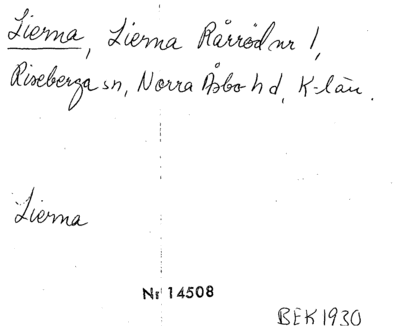 Lierna, Lierna Rårröd nr 1,
Riseberga sn, Norra Åsbo hd, K-län.
Lierna
Nr 14508
BEK 1930